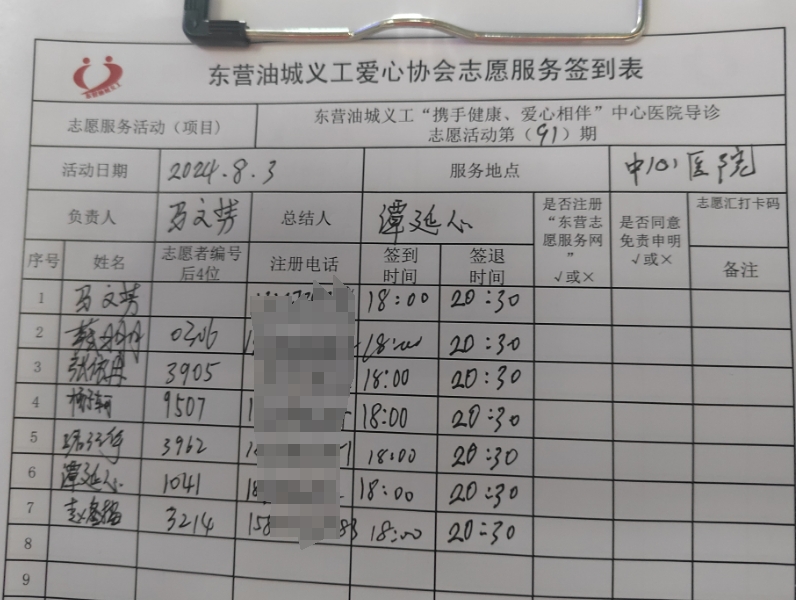 东营油城义工爱心协会志愿服务签到表
志愿服务活动（项目） 东营油城义工“携手健康、爱心相伴”中心医院导诊
志愿活动第（91）期
活动日期 2024.8.3 服务地点 中心医院
负责人 马文芳 总结人 谭延心 是否注册“东营志愿服务网” √或× 是否同意免责申明 √或× 志愿汇打卡码
序号 姓名 志愿者编号后4位 注册电话 签到时间 签退时间 备注
1 马文芳 18:00 20:30
2 0306 18:00 20:30
3 3905 18:00 20:30
4 9507 18:00 20:30
5 3962 18:00 20:30
6 谭延心 1041 18:00 20:30
7 3214 18:00 20:30
8
9